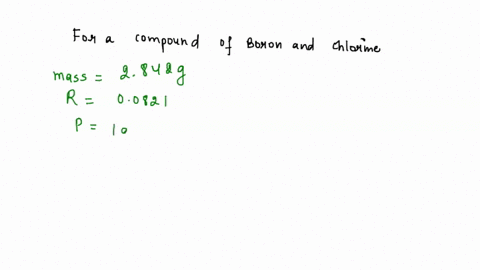 For a compound of Boron and Chlorine
mass = 2.842g
R = 0.0821
P = 10